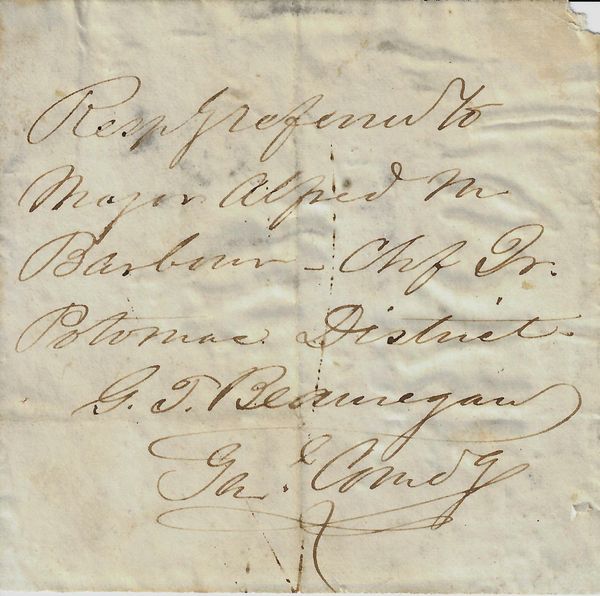 Respy referred to
Major Alfred M
Barbour - Chf Qr.
Potomac District.
G. T. Beauregard
Genl Comdg